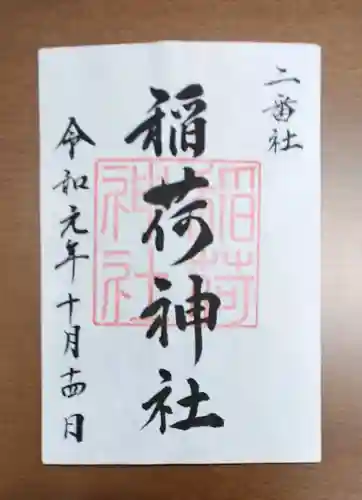 二番社
稲荷神社
稲荷神社
令和元年十月十四日